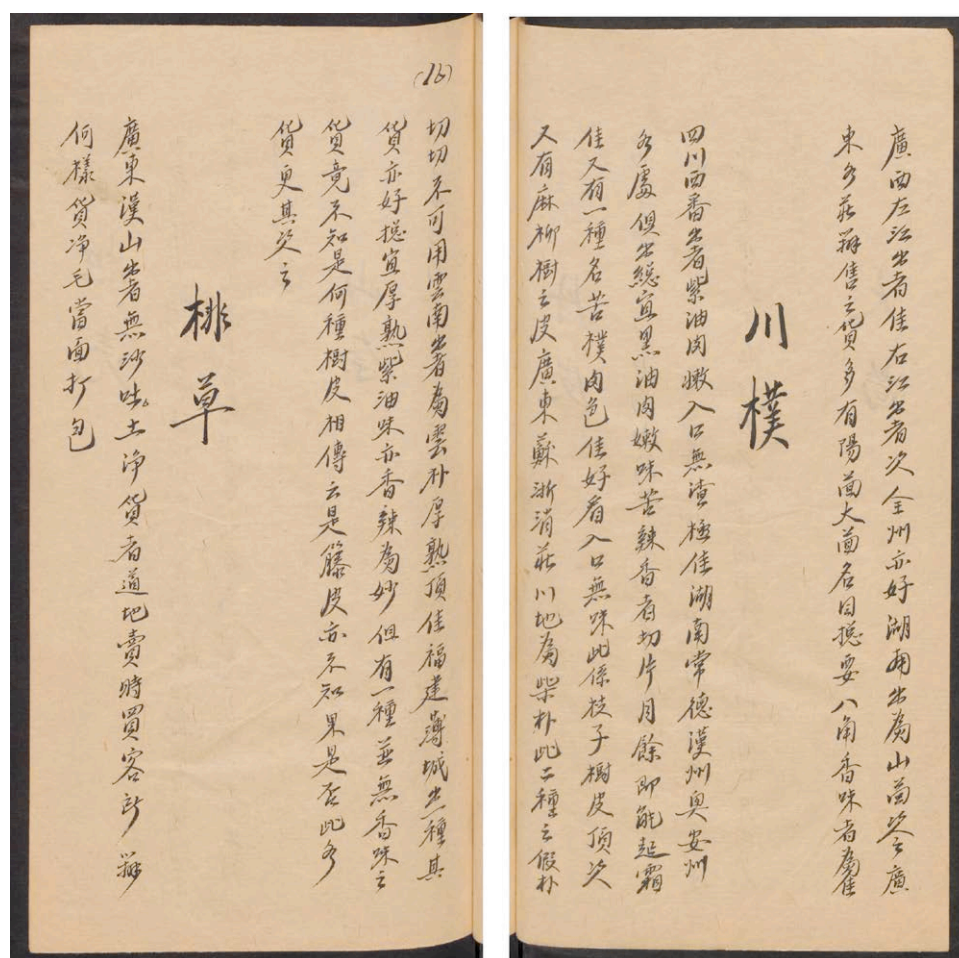 廣西左江出者佳右江出者次全州亦好湖南出為山茴次之廣
東各莊辦售之貨多有陽茴大茴名目摠要八角香味者為佳
川樸
四川西番出者紫油肉嫩入口無渣極佳湖南常德漢州與安州
各處俱出總宜黑油肉嫩味苦辣香者切片月餘即能起霜
佳又有一種名苦樸肉色佳好看入口無味此係枝子樹皮頂次
又有麻柳樹之皮廣東蘇浙消莊川地為柴朴此二種之假朴
(16)
切切不可用雲南出者為雲朴厚熟頂佳福建薄城出一種其
貨亦好摠宜厚熟紫油味亦香辣為妙但有一種並無香味之
貨竟不知是何種樹皮相傳云是籐皮亦不知果是否此各
貨更其次之
排草
廣東漢山出者無沙吐土净貨者道地賣時買客所辦
何樣貨净毛當面打包